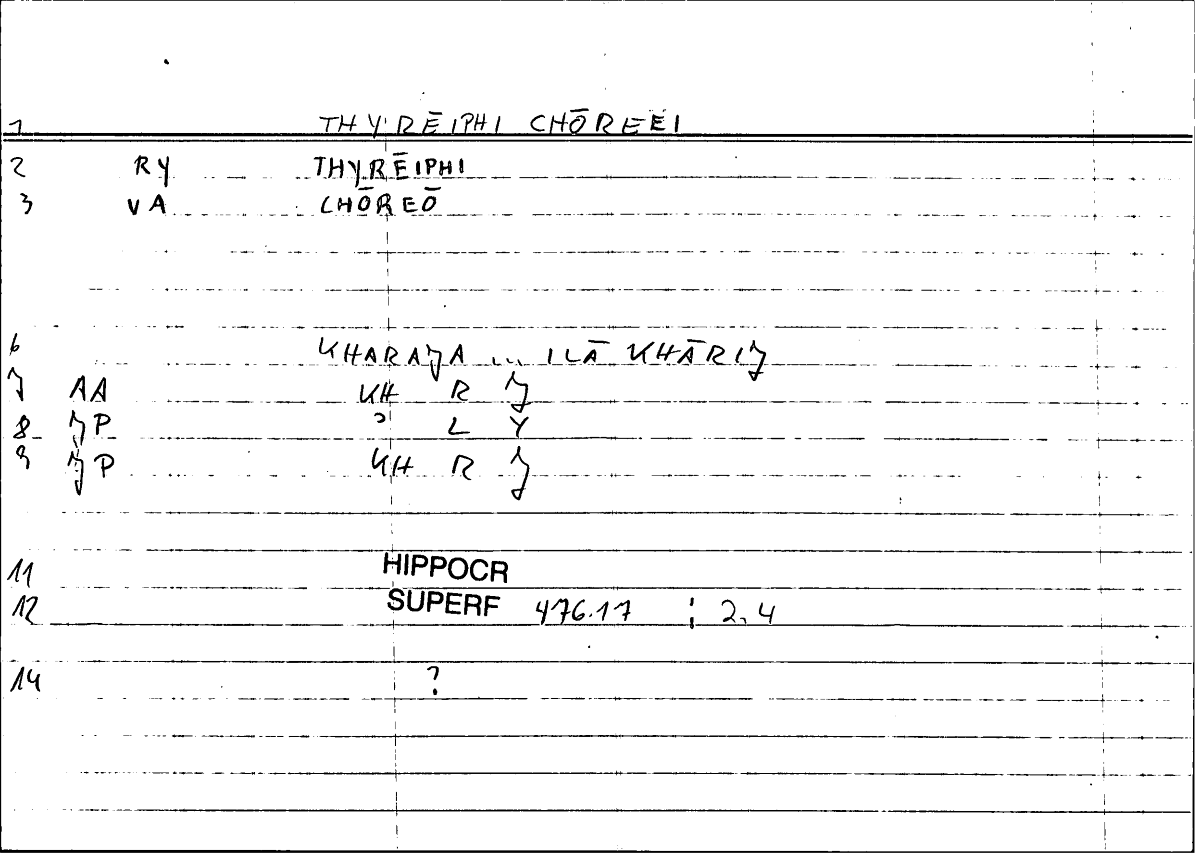 1 THYRĒIPHI CHŌREEI
2 RY THYRĒIPHI
3 VA CHŌREŌ
6 KHARAJA ... ILĀ KHĀRIJ
7 AA KH R J
8 JP ʾ L Y
9 JP KH R J
11 HIPPOCR
12 SUPERF 476.17 ; 2,4
14 ?